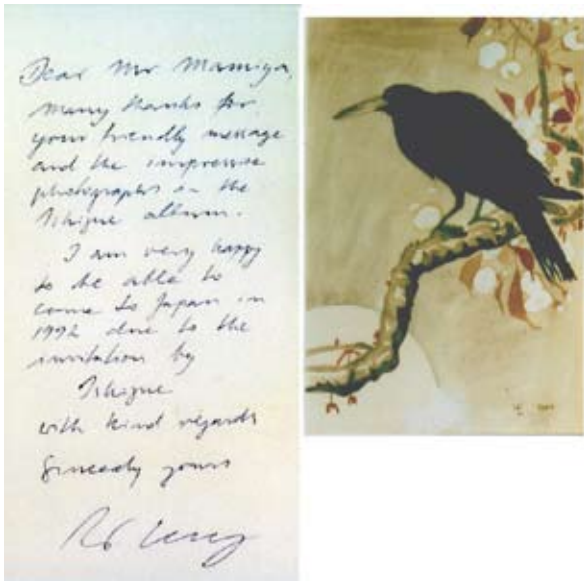 Dear Mr Mamiya,
many thanks for
your friendly message
and the impressive
photographs in the
Ishigue album.
I am very happy
to be able to
come to Japan in
1992 due to the
invitation by
Ishigue
with kind regards
Sincerely yours